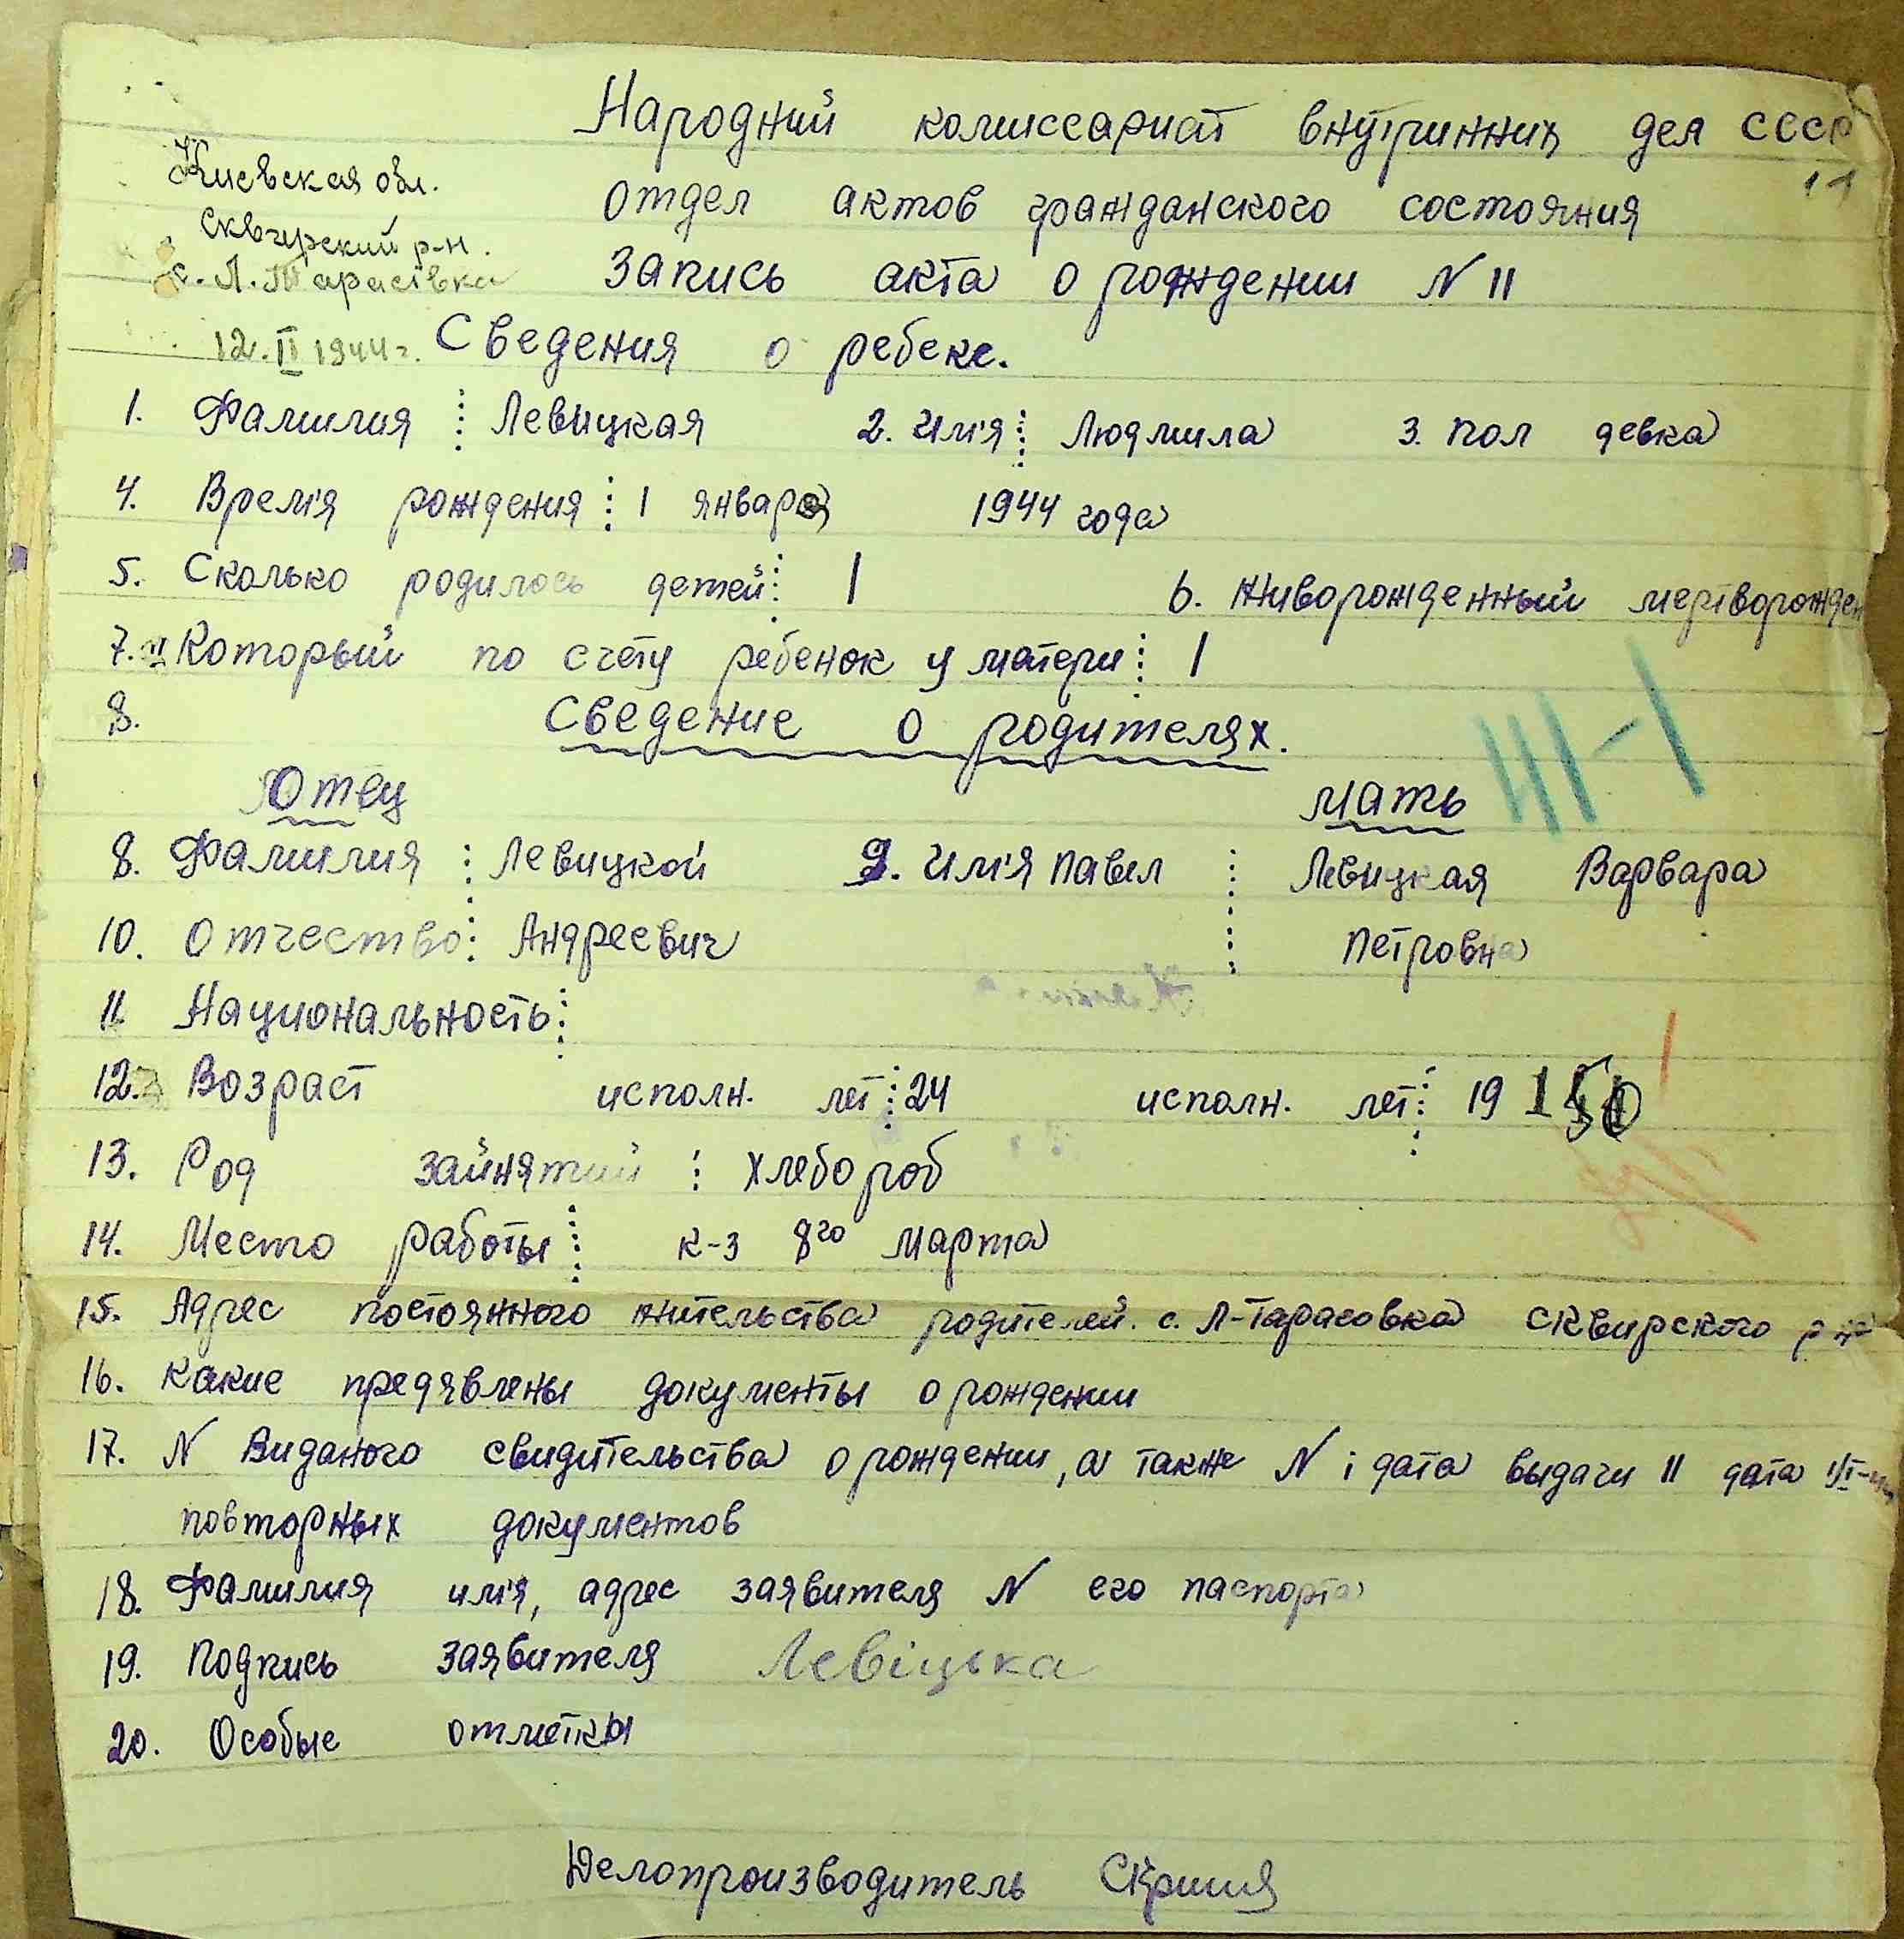 Народний комиссариат внутринних дел СССР
11
Киевская обл.
Сквирский р-н.
с. Л. Тарасівка
12.II 1944 г.
отдел актов гражданского состояния
Запись акта о рождении N 11
Сведения о ребеке.
1. Фамилия Левицкая 2. Им'я Людмила 3. пол девка
4. Врем'я рождения 1 января 1944 года
5. Сколько родилось детей 1 6. Живорожденный мертворожден
7. Который по счету ребенок у матери 1
8. Сведение о родителях.
Отец мать
8. Фамилия Левицкой 9. Им'я Павел Левицкая Варвара
10. Отчество Андреевич Петровна
11 Национальность
12. Возраст исполн. лет 24 исполн. лет 19
13. Род зайнятий хлебороб
14. Место работы к-з 8го марта
15. Адрес постоянного жительства родителей. с. Л-Тарасовка Сквирского
16. какие предявлены документы о рождении
17. N Виданого свидительства о рождении, а также N і дата выдачи 11 дата
повторных документов
18. Фамилия им'я, адрес заявителя N его паспорта
19. Подпись заявителя Левіцька
20. Особые отметкы
Делопроизводитель